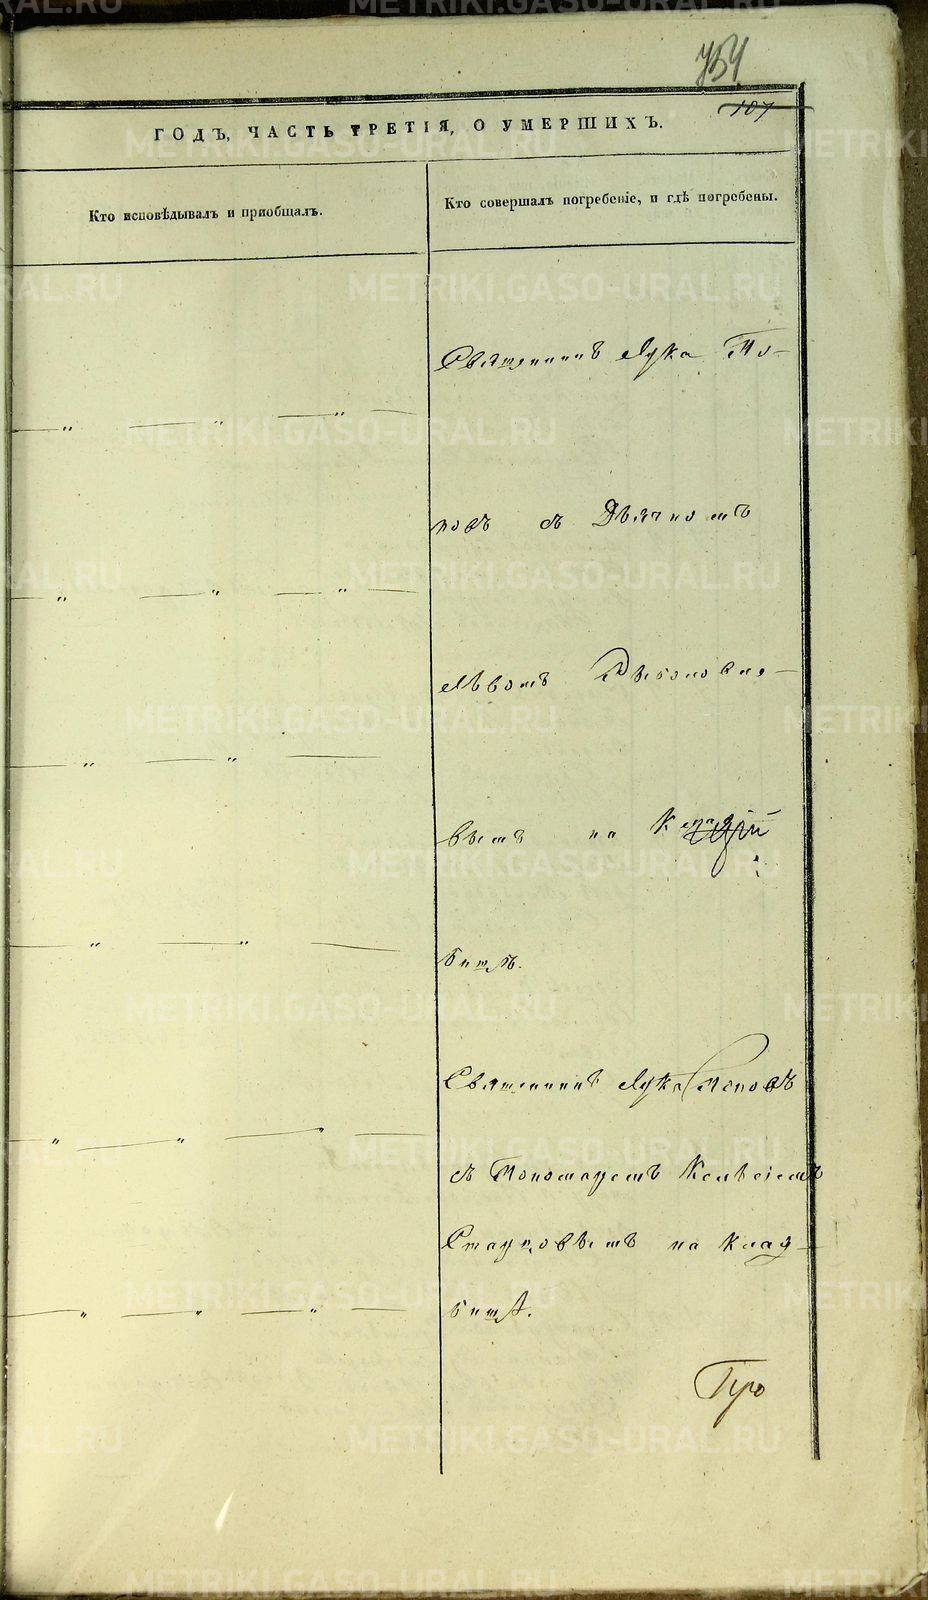 754
107
ГОДЪ, ЧАСТЬ ТРЕТІЯ, О УМЕРШИХЪ.
Кто исповѣдывалъ и пріобщалъ.
Кто совершалъ погребеніе, и гдѣ погребены.
Священникъ Лука По-
повъ съ Дьячкомъ
Львомъ
вымъ на
бищѣ.
Священникъ Лука Поповъ
съ Пономаремъ
на клад-
бищѣ.
METRIKI.GASO-URAL.RU